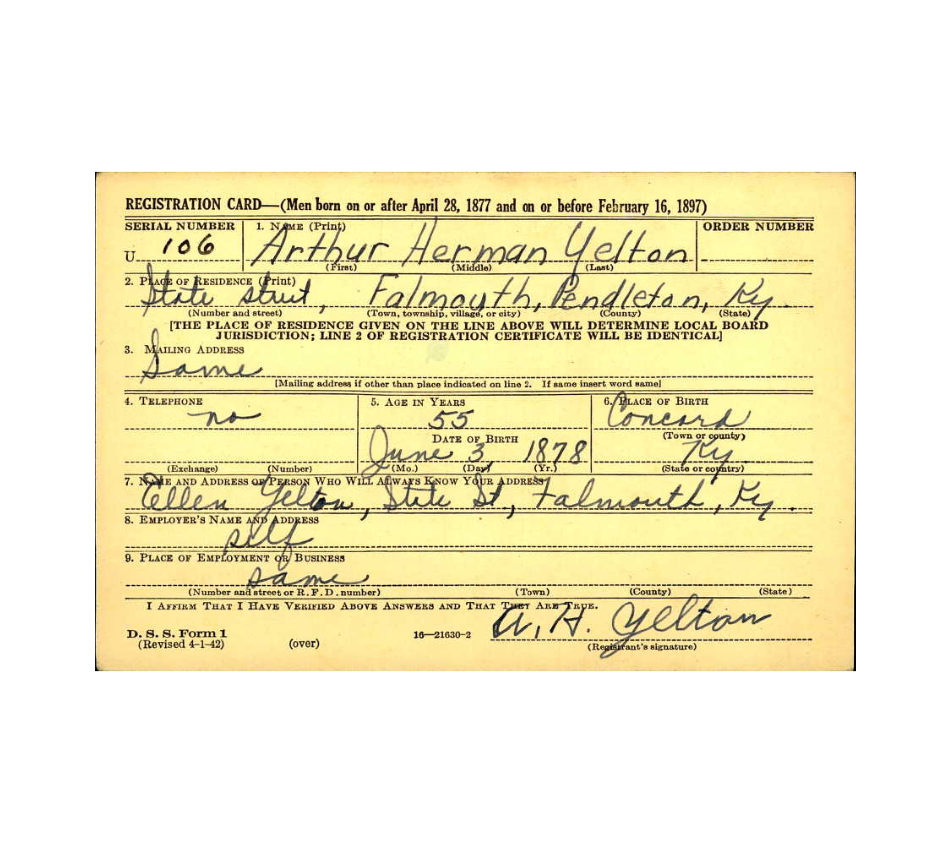 REGISTRATION CARD—(Men born on or after April 28, 1877 and on or before February 16, 1897)
SERIAL NUMBER 1. NAME (Print) ORDER NUMBER
U 106 Arthur Herman Yelton
(First) (Middle) (Last)
2. PLACE OF RESIDENCE (Print)
State Street, Falmouth, Pendleton, Ky.
(Number and street) (Town, township, village, or city) (County) (State)
[THE PLACE OF RESIDENCE GIVEN ON THE LINE ABOVE WILL DETERMINE LOCAL BOARD
JURISDICTION; LINE 2 OF REGISTRATION CERTIFICATE WILL BE IDENTICAL]
3. MAILING ADDRESS
Same
[Mailing address if other than place indicated on line 2. If same insert word same]
4. TELEPHONE 5. AGE IN YEARS 6. PLACE OF BIRTH
no 55 Concord
DATE OF BIRTH (Town or county)
June 3, 1878 Ky.
(Exchange) (Number) (Mo.) (Day) (Yr.) (State or country)
7. NAME AND ADDRESS OF PERSON WHO WILL ALWAYS KNOW YOUR ADDRESS
Ellen Yelton, State St, Falmouth, Ky.
8. EMPLOYER'S NAME AND ADDRESS
self
9. PLACE OF EMPLOYMENT OR BUSINESS
same
(Number and street or R. F. D. number) (Town) (County) (State)
I AFFIRM THAT I HAVE VERIFIED ABOVE ANSWERS AND THAT THEY ARE TRUE.
A. H. Yelton
D. S. S. Form 1 16—21630-2
(Revised 4-1-42) (over) (Registrant's signature)